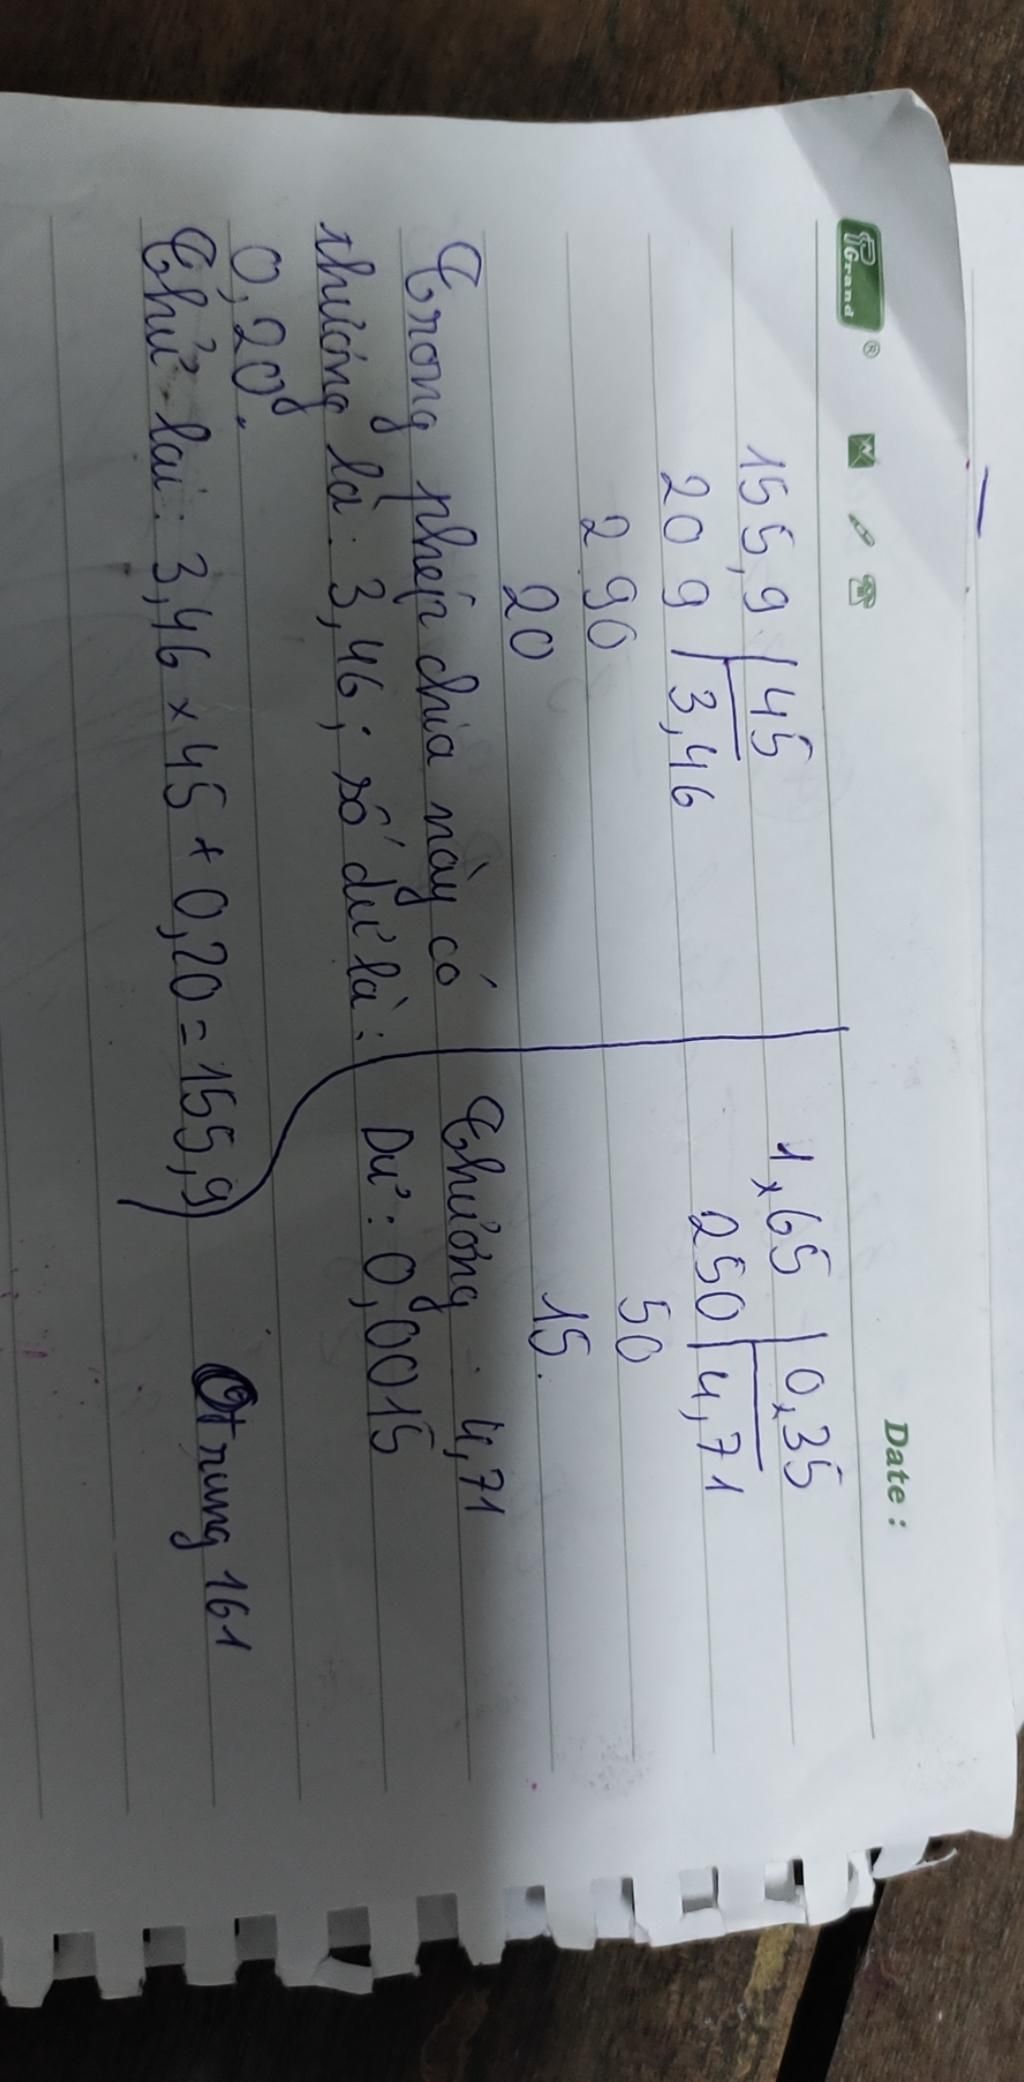 PGrand ®
Date :
155,9 45
20 9 3,46
2 90
20
Trong phép chia này có
thương là: 3,46; số dư là:
0,20.
Thử lại: 3,46 x 45 + 0,20 = 155,9
1,65 0,35
250 4,71
50
15.
Thương: 4,71
Dư: 0,0015
Trung 161